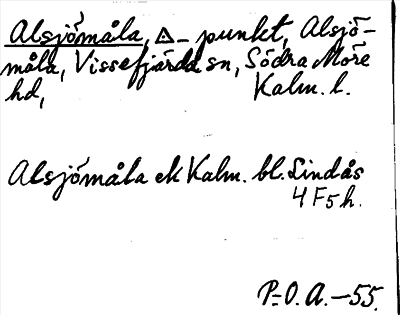 Alsjömåla, △ - punkt, Alsjö-
måla, Vissefjärda sn, Södra Möre
hd, Kalm. l.
Alsjömåla ek Kalm. bl. Lindås
4 F5h.
P-O. A. -55.